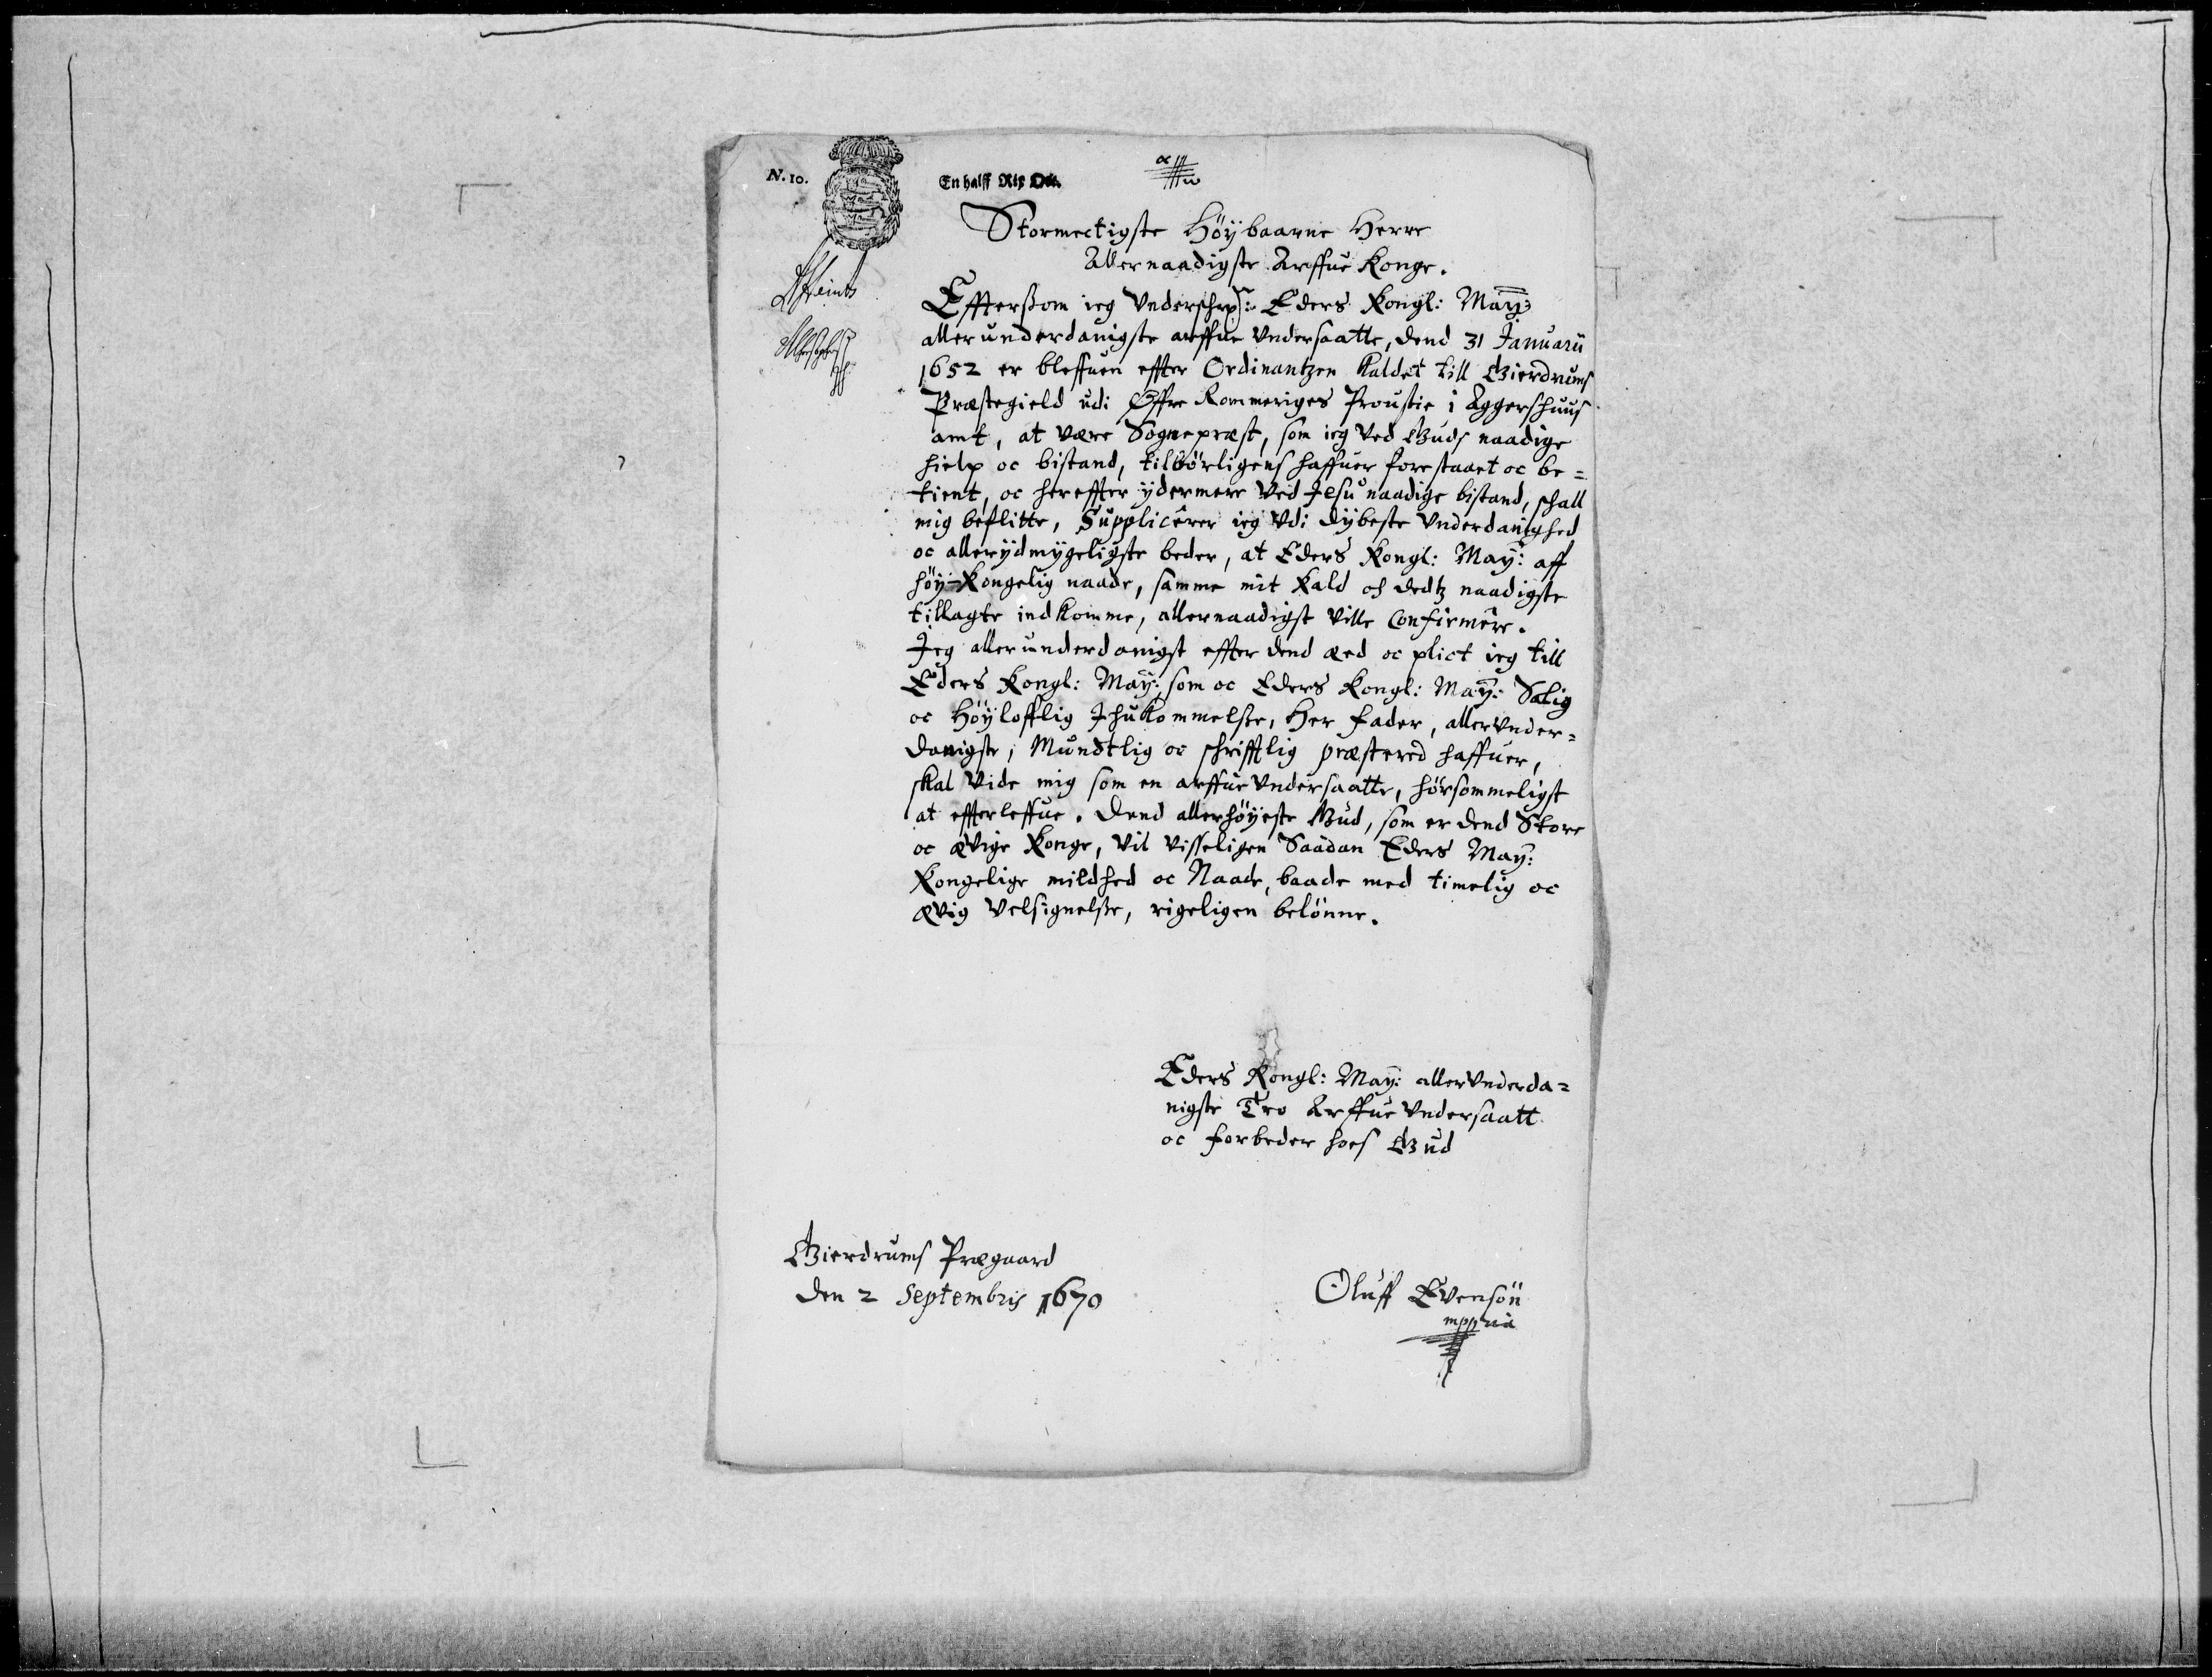 N. 10.
En halff Rix Dlr.
Stormectigste Höybaarne Herre
Allernaadigste Arffue Konge.
Effterssom ieg Underschrf: Eders Kongl: May:
allerunderdanigste arffue Undersaatte, dend 31 Januarii
1652 er bleffuen effter Ordinantzen kaldet till Gierdrums
Præstegield udi Øffre Rommeriges Proustie i Aggershuus
amt, at være Sognepræst, som ieg ved Guds naadige
hielp oc bistand, tilbörligens haffuer forestaaet oc be=
tient, oc hereffter ydermere Ved Jesu naadige bistand, schall
mig beflitte, Supplicerer ieg Udi dybeste Underdanighed
oc allerydmygeligste beder, at Eders Kongl: May: aff
höy-Kongelig naade, samme mit Kald oc dedtz naadigste
tillagte indkomme, allernaadigst ville Confirmere.
Jeg allerunderdanigst effter dend æed oc plict ieg till
Eders Kongl: May: som oc Eders Kongl: May: Salig
oc Höylofflig Ihukommelsse, Her Fader, allerUnder=
danigste, Mundtlig oc schrifftlig præstered haffuer,
skal vide mig som en arffue Undersaatte, hörsommeligst
at effterleffue. Dend allerhöyeste Gud, som er dend Store
oc ævige Konge, vil visseligen Saadan Eders May:
Kongelige mildhed oc Naade, baade med timelig oc
ævig Velsignelsse, rigeligen belönne.
Eders Kongl: May: allerUnderda=
nigste Tro Arffue Undersaatt
oc forbeder hoes Gud
Gierdrums Prægaard
den 2 Septembris 1670
Oluff Evensön
mppria